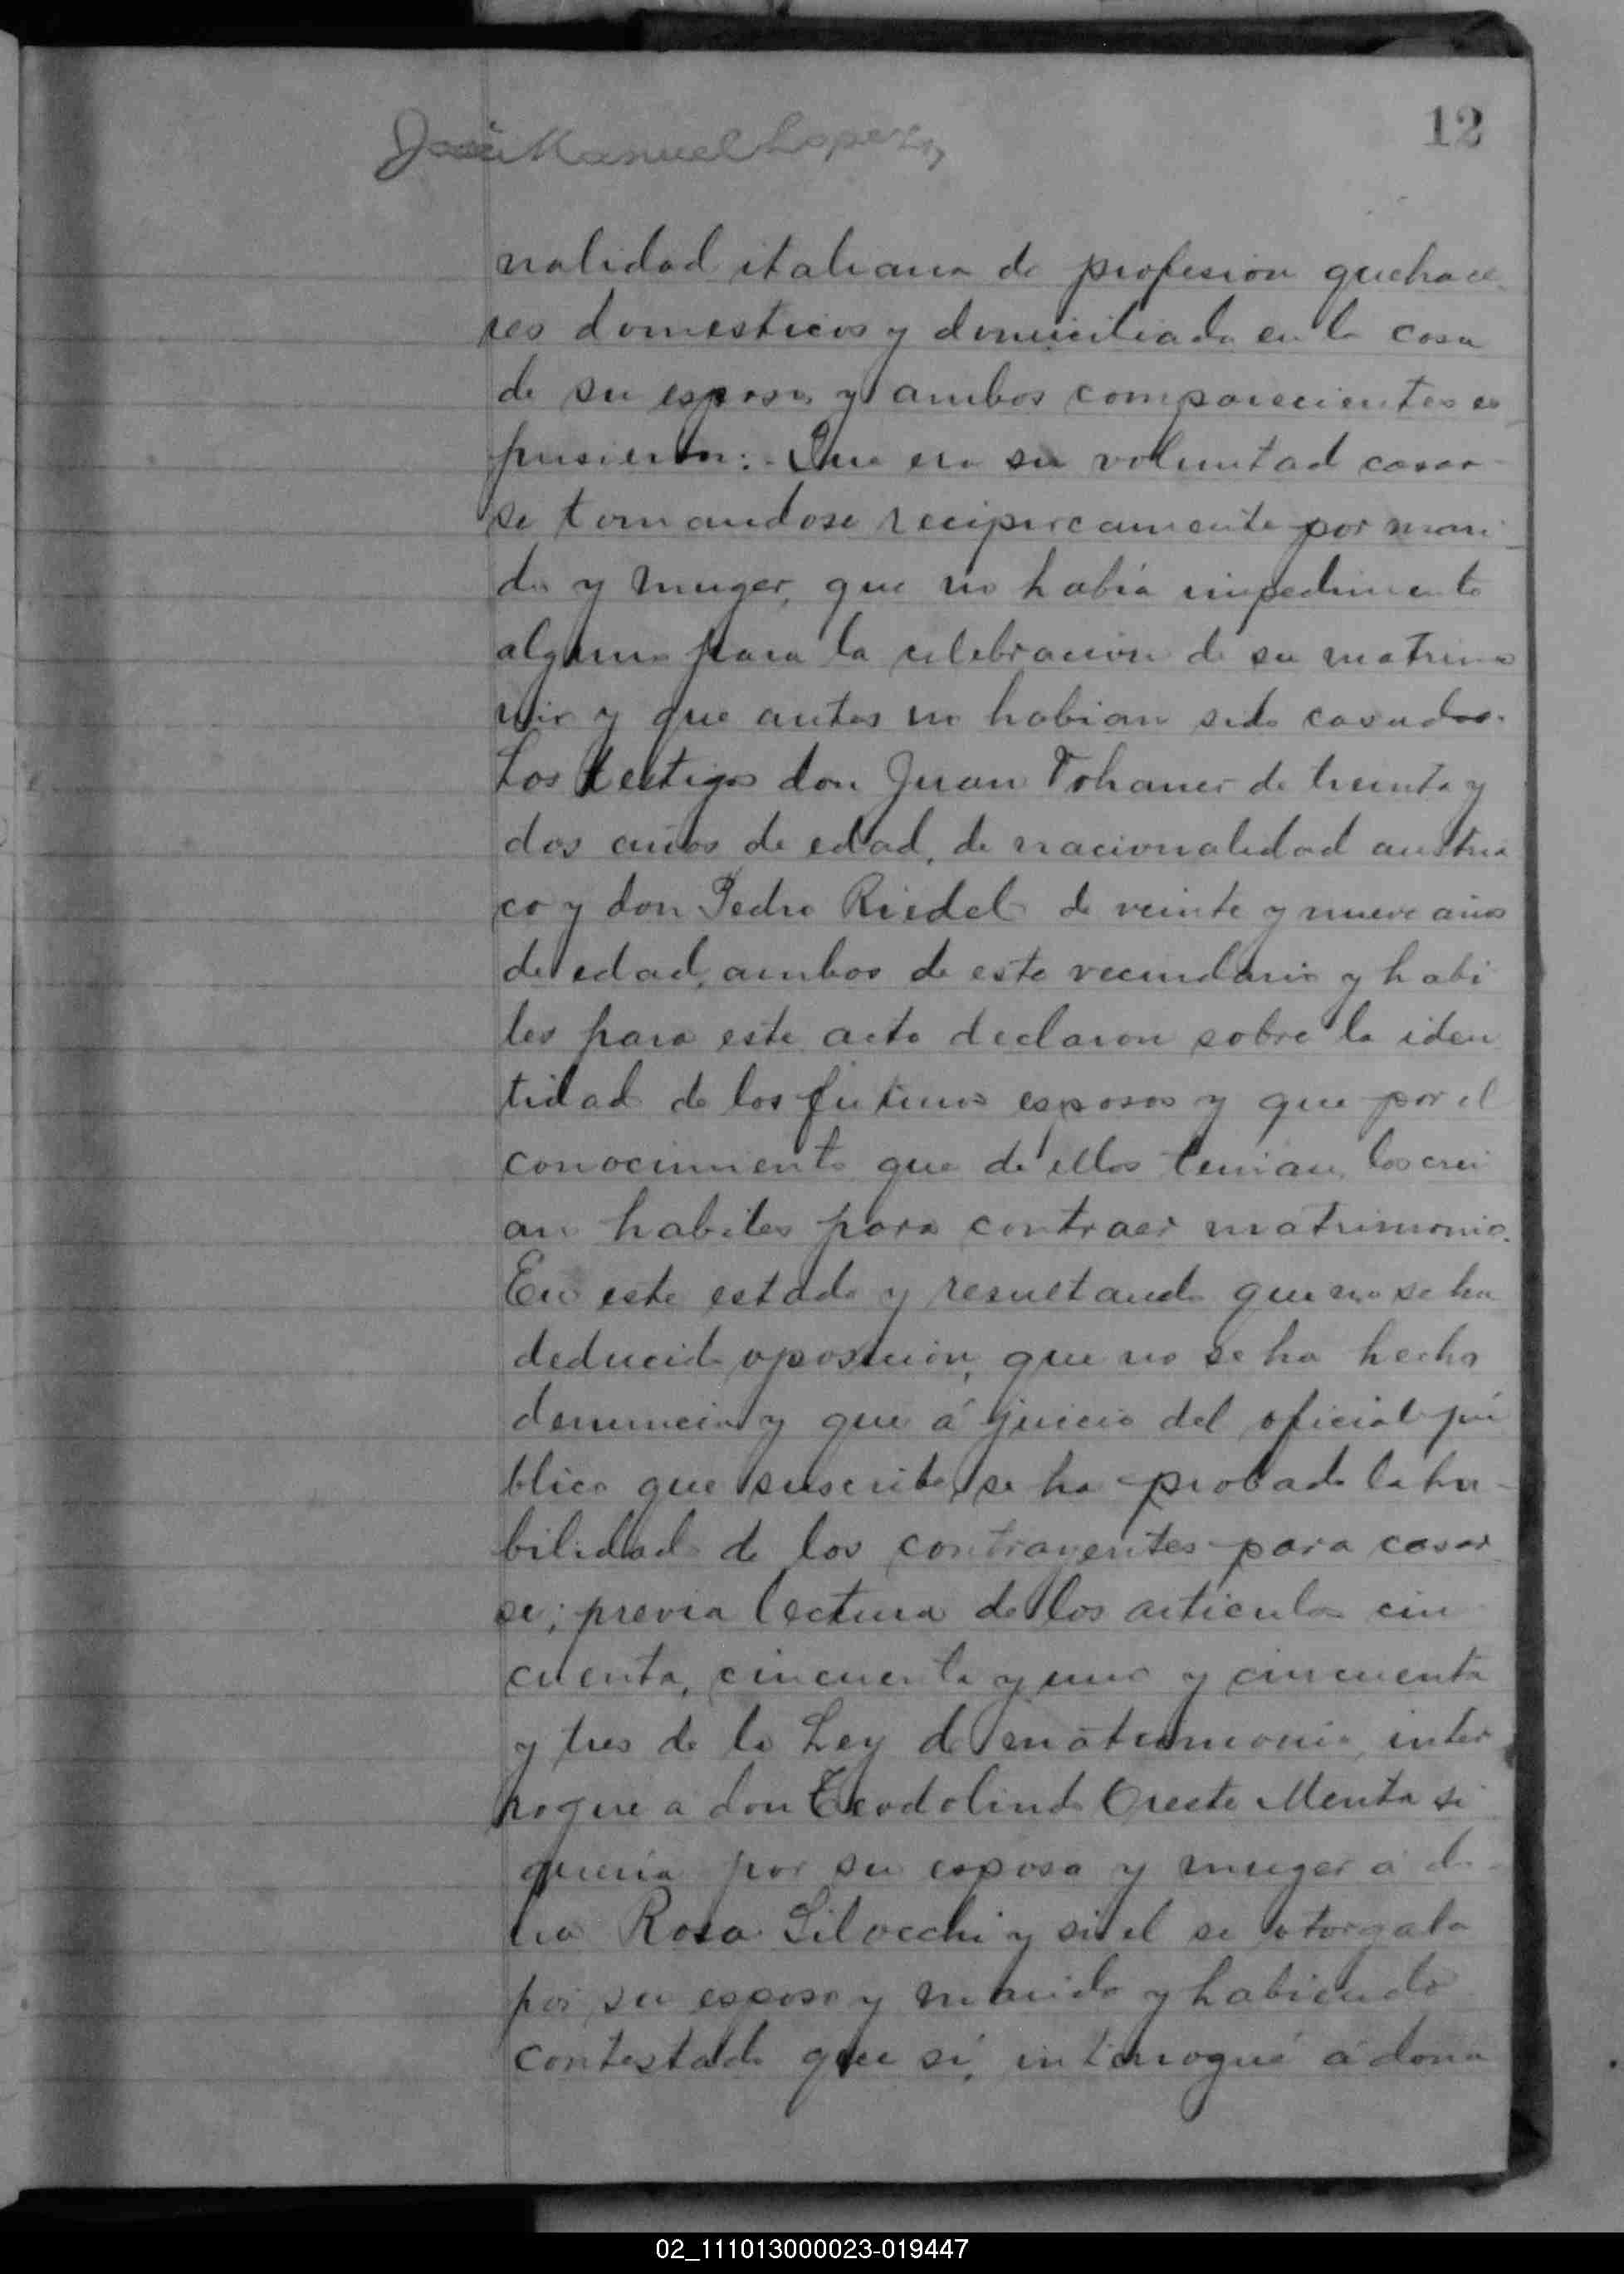 12
José Manuel Lopez
nalidad italiana de profesion quehace
res domesticos y domiciliada en la casa
de su esposo y ambos comparecientes es
pusieron: Que era su voluntad casar
se tomandose reciprocamente por mari
do y muger, que no habia impedimento
alguno para la celebracion de su matrimo
nio y que antes no habian sido casados.
Los testigos don Juan de treinta y
dos años de edad, de nacionalidad austria
co y don Pedro Riedel de veinte y nueve años
de edad, ambos de este vecindario y habi
les para este acto declaron sobre la iden
tidad de los futuros esposos y que por el
conocimiento que de ellos tenian, los crei
an habiles para contraer matrimonio.
En este estado y resultando que no se ha
deducido oposicion, que no se ha hecho
denuncia y que á juicio del oficial pú
blico que suscribe, se ha probado la ha
bilidad de los contrayentes para casar
se; previa lectura de los articulos cin
cuenta, cincuenta y uno y cincuenta
y tres de la Ley de matrimonio, inter
rogue a don Teodolindo Oreste Menta si
queria por su esposa y muger á do
ña Rosa Silocchi y si el se otorgaba
por su esposo y marido y habiendo
contestado que sí, interrogué á dona
02_111013000023-019447